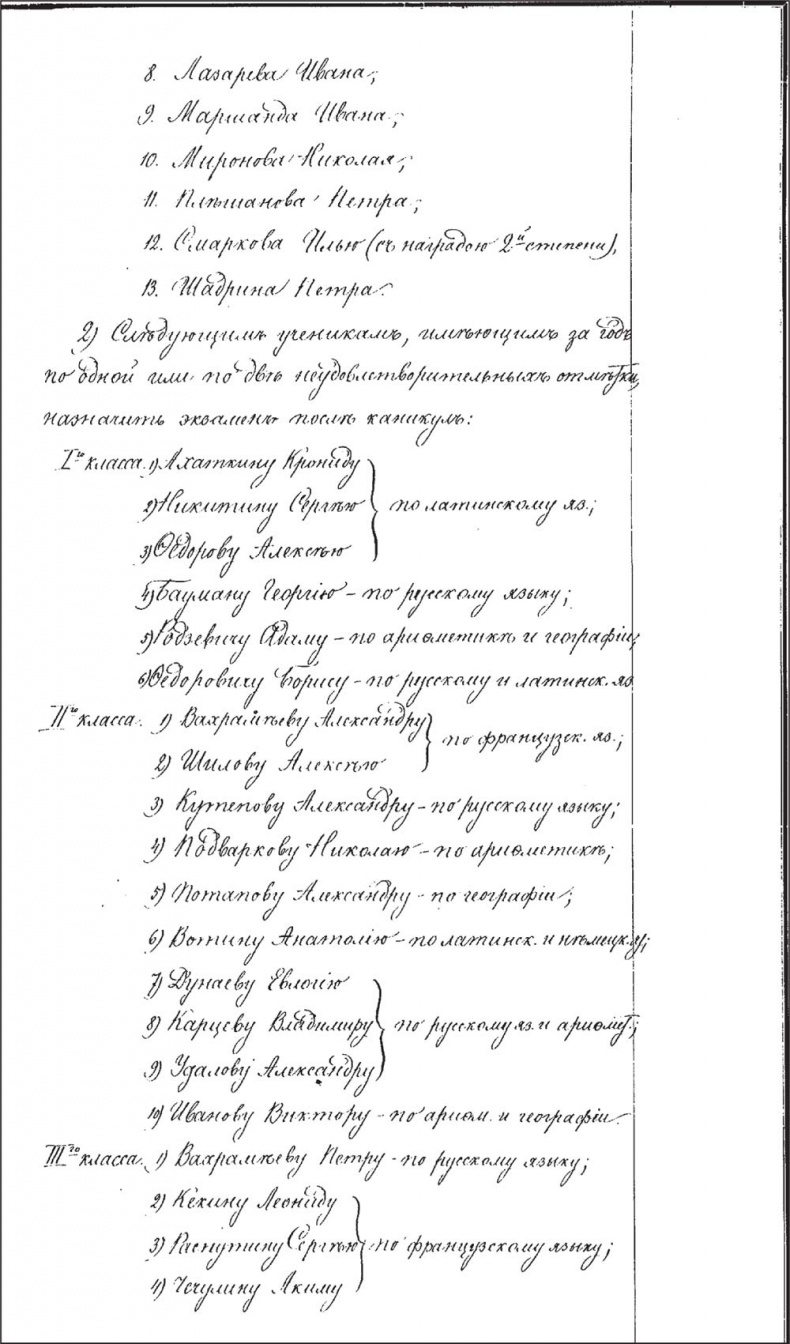 8. Лазарева Ивана;
9. Маршанда Ивана;
10. Миронова Николая;
11. Плѣшанова Петра;
12. Смаркова Илью (съ наградою 2й степени),
13. Шадрина Петра.
2) Слѣдующимъ ученикамъ, имѣющимъ за годъ
по одной или по двѣ неудовлетворительныхъ отмѣтки,
назначить экзаменъ послѣ каникулъ:
Iго класса. 1) Ахаткину Крониду
2) Никитину Сергѣю } по латинскому яз.;
3) Ѳедорову Алексѣю
4) Бауману Георгію – по русскому языку;
5) Родзевичу Адаму – по ариѳметикѣ и географіи;
6) Ѳедоровичу Борису – по русскому и латинск. яз.
IIго класса. 1) Вахрамѣеву Александру } по французск. яз.;
2) Шилову Алексѣю
3) Кутепову Александру – по русскому языку;
4) Подваркову Николаю – по ариѳметикѣ;
5) Потапову Александру – по географіи;
6) Вотину Анатолію – по латинск. и нѣмецк. яз;
7) Дунаеву Евлогію
8) Карцеву Владимиру } по русскому яз. и ариѳмет.;
9) Удалову Александру
10) Иванову Виктору – по ариѳм. и географіи.
IIIго класса. 1) Вахрамѣеву Петру – по русскому языку;
2) Кекину Леониду
3) Распутину Сергѣю } по французскому языку;
4) Чечулину Акиму